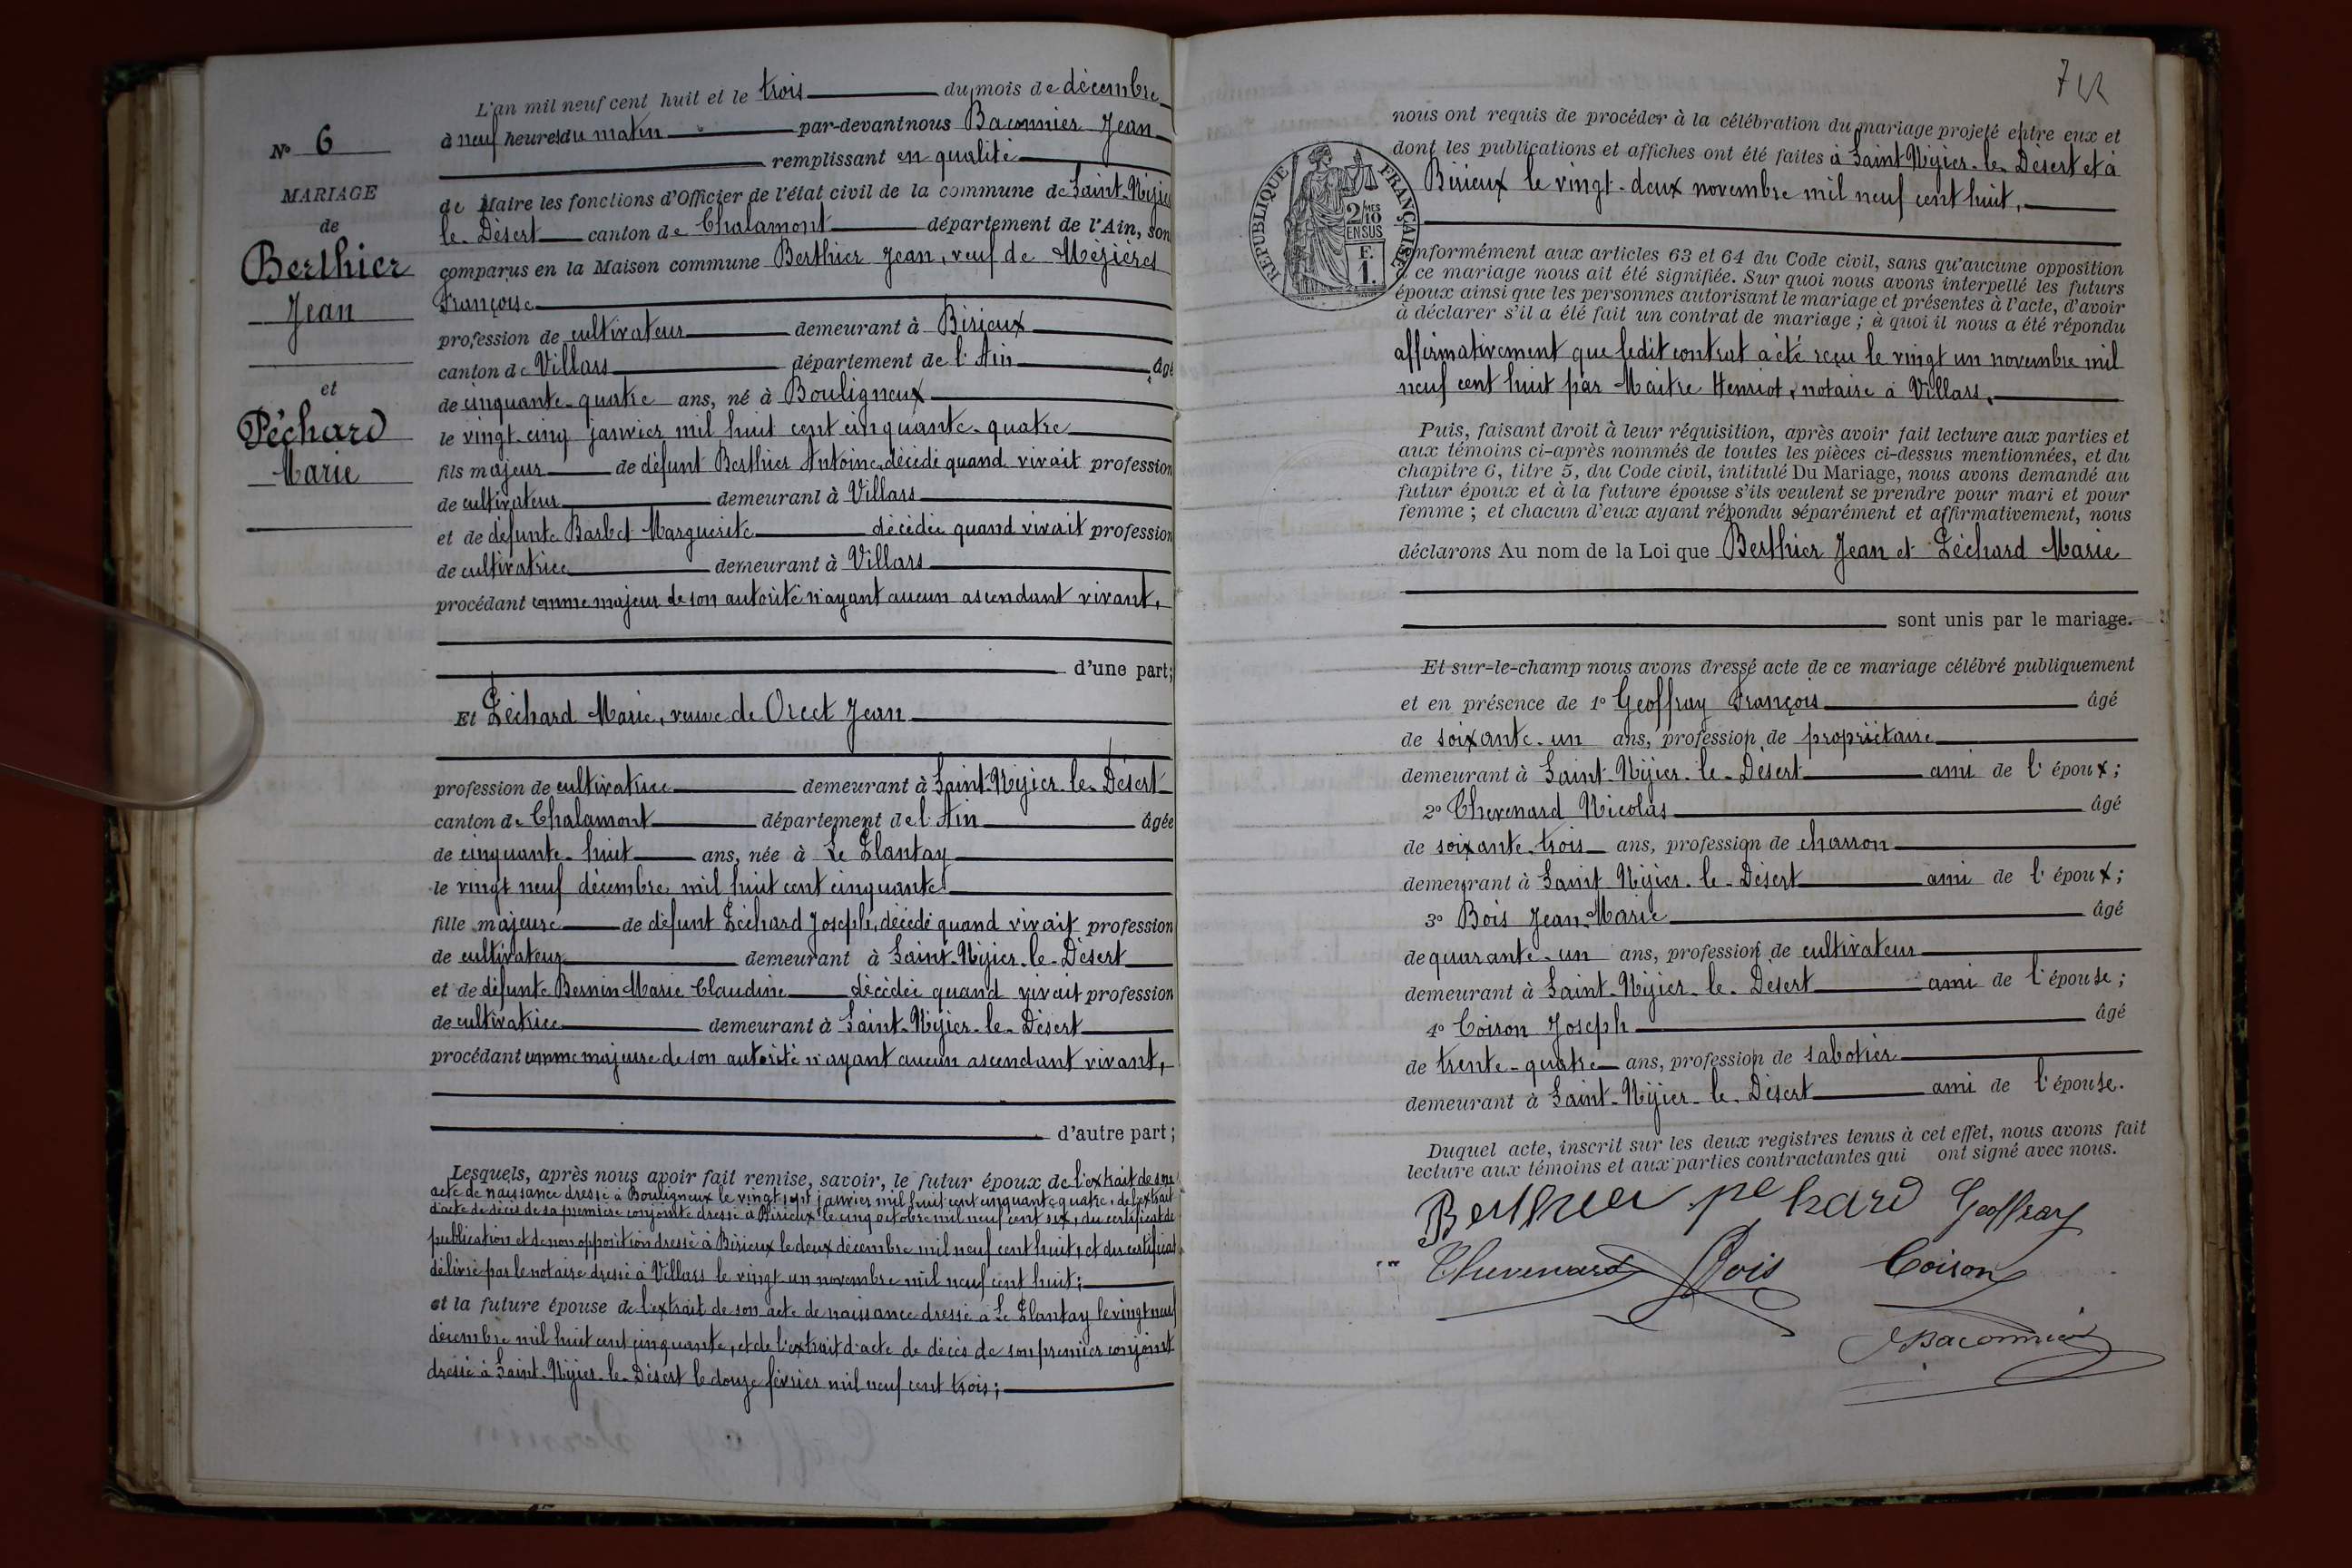 L'an mil neuf cent huit et le trois du mois de décembre
à neuf heures du matin par-devant nous Baconnier Jean
remplissant en qualité
de Maire les fonctions d'Officier de l'état civil de la commune de Saint-Nizier
le-Désert canton de Chalamont département de l'Ain, son
comparus en la Maison commune Berthier Jean, veuf de Mézières
Françoise
profession de cultivateur demeurant à Birieux
canton de Villars département de l'Ain âgé
de cinquante-quatre ans, né à Bouligneux
le vingt-cinq janvier mil huit cent cinquante-quatre
fils majeur de défunt Berthier Antoine, décédé quand vivait profession
de cultivateur demeurant à Villars
et de défunte Barbet Marguerite décédée quand vivait profession
de cultivatrice demeurant à Villars
procédant comme majeur de son autorité n'ayant aucun ascendant vivant,
d'une part;
Et Péchard Marie, veuve de Orcet Jean
profession de cultivatrice demeurant à Saint-Nizier-le-Désert
canton de Chalamont département de l'Ain âgée
de cinquante-huit ans, née à Le Plantay
le vingt neuf décembre mil huit cent cinquante
fille majeure de défunt Péchard Joseph, décédé quand vivait profession
de cultivateur demeurant à Saint-Nizier-le-Désert
et de défunte Bernin Marie Claudine décédée quand vivait profession
de cultivatrice demeurant à Saint-Nizier-le-Désert
procédant comme majeure de son autorité n'ayant aucun ascendant vivant,
d'autre part;
Lesquels, après nous avoir fait remise, savoir, le futur époux de l'extrait de son
acte de naissance dressé à Bouligneux le vingt sept janvier mil huit cent cinquante quatre, de l'extrait
d'acte de décès de sa première conjointe dressé à Birieux le cinq octobre mil neuf cent six, du certificat de
publication et de non opposition dressé à Birieux le deux décembre mil neuf cent huit, et du certificat
délivré par le notaire dressé à Villars le vingt-un novembre mil neuf cent huit;
et la future épouse de l'extrait de son acte de naissance dressé à Le Plantay le vingt neuf
décembre mil huit cent cinquante, et de l'extrait d'acte de décès de son premier conjoint
dressé à Saint-Nizier-le-Désert le douze février mil neuf cent trois;
N° 6
MARIAGE
de
Berthier
Jean
et
Péchard
Marie
nous ont requis de procéder à la célébration du mariage projeté entre eux et
dont les publications et affiches ont été faites à Saint-Nizier-le-Désert et à
Birieux le vingt-deux novembre mil neuf cent huit,
RÉPUBLIQUE FRANÇAISE
2/10 MES
EN SUS
F.
1.
nformément aux articles 63 et 64 du Code civil, sans qu'aucune opposition
ce mariage nous ait été signifiée. Sur quoi nous avons interpellé les futurs
époux ainsi que les personnes autorisant le mariage et présentes à l'acte, d'avoir
à déclarer s'il a été fait un contrat de mariage; à quoi il nous a été répondu
affirmativement que ledit contrat a été reçu le vingt un novembre mil
neuf cent huit par Maître Henriot, notaire à Villars.
Puis, faisant droit à leur réquisition, après avoir fait lecture aux parties et
aux témoins ci-après nommés de toutes les pièces ci-dessus mentionnées, et du
chapitre 6, titre 5, du Code civil, intitulé Du Mariage, nous avons demandé au
futur époux et à la future épouse s'ils veulent se prendre pour mari et pour
femme; et chacun d'eux ayant répondu séparément et affirmativement, nous
déclarons Au nom de la Loi que Berthier Jean et Péchard Marie
sont unis par le mariage.
Et sur-le-champ nous avons dressé acte de ce mariage célébré publiquement
et en présence de 1° Geoffray François âgé
de soixante-un ans, profession de propriétaire
demeurant à Saint-Nizier-le-Désert ami de l'époux;
2° Thevenard Nicolas âgé
de soixante-trois ans, profession de charron
demeurant à Saint-Nizier-le-Désert ami de l'époux;
3° Bois Jean-Marie âgé
de quarante-un ans, profession de cultivateur
demeurant à Saint-Nizier-le-Désert ami de l'épouse;
4° Coiron Joseph âgé
de trente-quatre ans, profession de sabotier
demeurant à Saint-Nizier-le-Désert ami de l'épouse.
Duquel acte, inscrit sur les deux registres tenus à cet effet, nous avons fait
lecture aux témoins et aux parties contractantes qui ont signé avec nous.
Berthier pehard Geoffray
Thevenard Bois Coiron
Baconnier